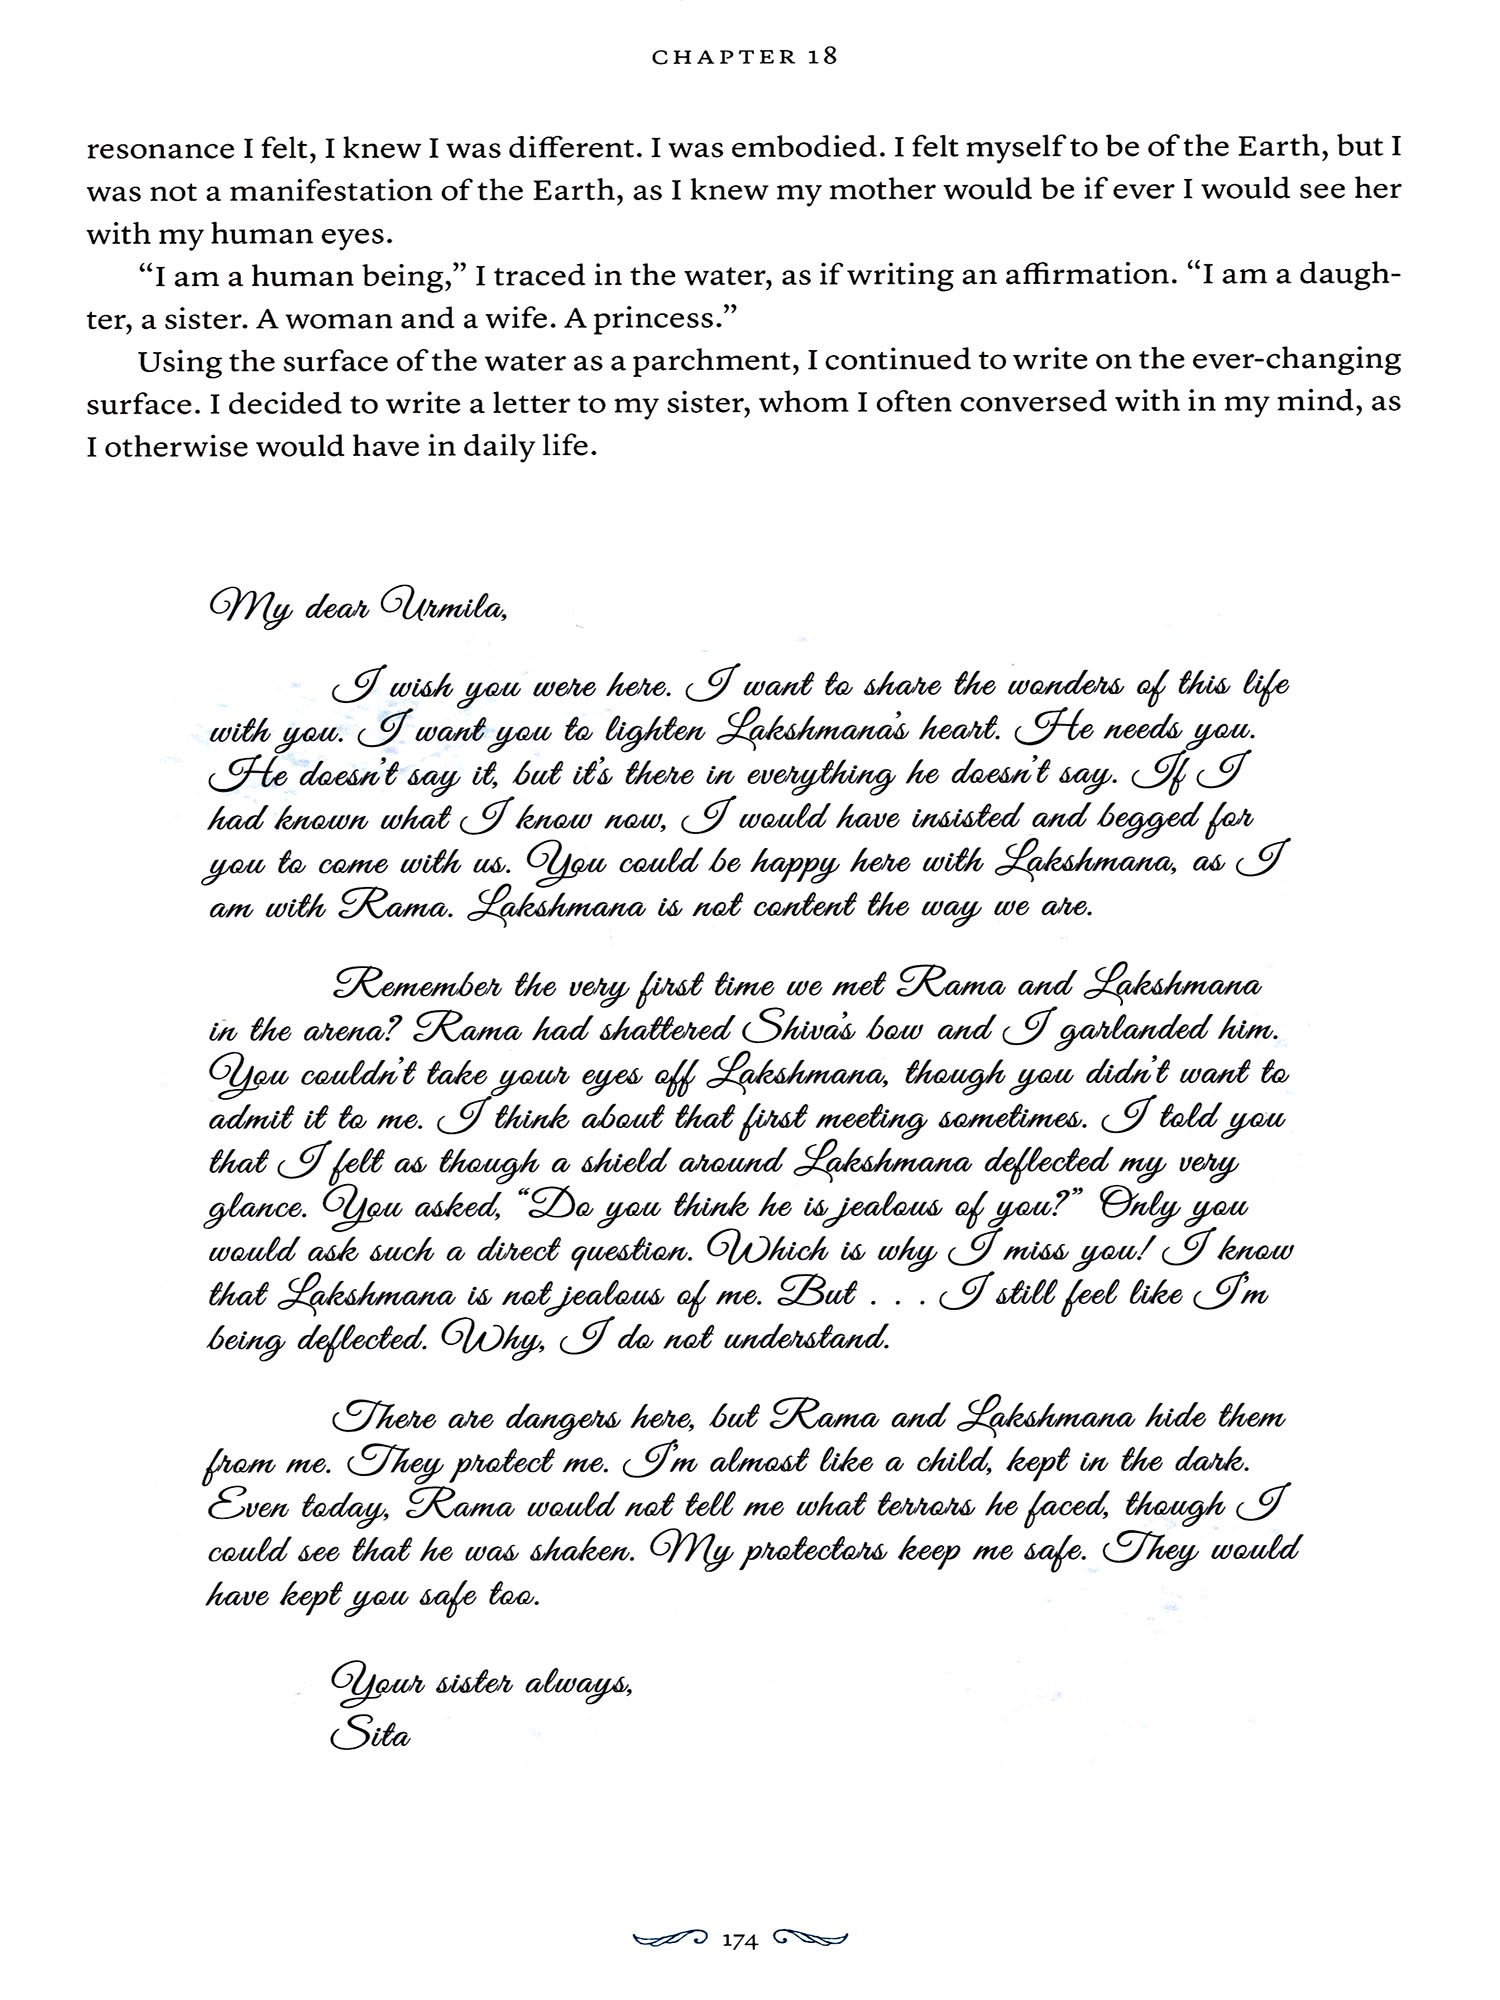 CHAPTER 18
resonance I felt, I knew I was different. I was embodied. I felt myself to be of the Earth, but I
was not a manifestation of the Earth, as I knew my mother would be if ever I would see her
with my human eyes.
“I am a human being,” I traced in the water, as if writing an affirmation. “I am a daugh-
ter, a sister. A woman and a wife. A princess.”
Using the surface of the water as a parchment, I continued to write on the ever-changing
surface. I decided to write a letter to my sister, whom I often conversed with in my mind, as
I otherwise would have in daily life.
My dear Urmila,
I wish you were here. I want to share the wonders of this life
with you. I want you to lighten Lakshmana’s heart. He needs you.
He doesn’t say it, but it’s there in everything he doesn’t say. If I
had known what I know now, I would have insisted and begged for
you to come with us. You could be happy here with Lakshmana, as I
am with Rama. Lakshmana is not content the way we are.
Remember the very first time we met Rama and Lakshmana
in the arena? Rama had shattered Shiva’s bow and I garlanded him.
You couldn’t take your eyes off Lakshmana, though you didn’t want to
admit it to me. I think about that first meeting sometimes. I told you
that I felt as though a shield around Lakshmana deflected my very
glance. You asked, “Do you think he is jealous of you?” Only you
would ask such a direct question. Which is why I miss you! I know
that Lakshmana is not jealous of me. But . . . I still feel like I’m
being deflected. Why, I do not understand.
There are dangers here, but Rama and Lakshmana hide them
from me. They protect me. I’m almost like a child, kept in the dark.
Even today, Rama would not tell me what terrors he faced, though I
could see that he was shaken. My protectors keep me safe. They would
have kept you safe too.
Your sister always,
Sita
174